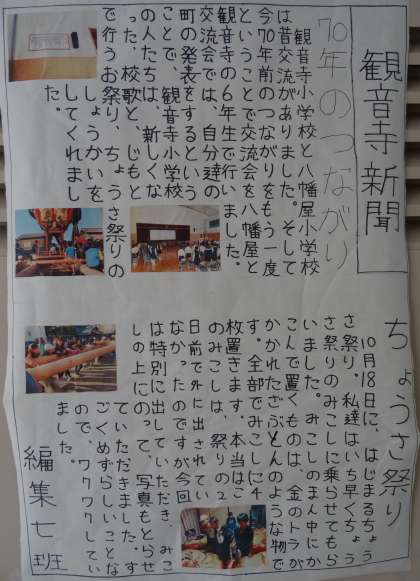 観音寺新聞
70年のつながり
観音寺小学校と八幡屋小学校
は昔交流がありました。そして
今70年前のつながりをもう一度
ということで交流会を八幡屋と
観音寺の6年生で行いました。
交流会では、自分達の
町の発表をするという
ことで、観音寺小学校
の人たちは、新しくな
った、校歌と、じもと
で行うお祭り、ちょうさ祭りの
しょうかいを
してくれまし
た。
ちょうさ祭り
10月18日に、はじまるちょう
さ祭り、私達はいち早くちょう
さ祭りのみこしに乗らせてもら
いました。みこしのまん中にか
こんで置くものは、金のトラが
かかれたざぶとんのような物で
す。全部でみこしに4
枚置きます。本当はこ
のみこしは、祭りの2
日前で外に出されてい
なかったのですが今回
は特別に出していただき、みこ
しの上にのって、写真もとらせ
ていただきました。す
ごくめずらしいことな
ので、ワクワクしてい
ました。
編集七班